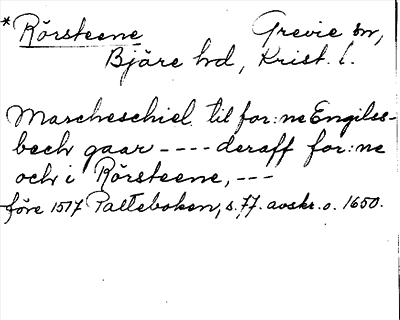 *Rörsteene Grevie sn,
Bjäre hd, Krist. l.
Marcheschiel til for:ne Engilss-
bech gaar ---- deraff for:ne
och i Rörsteene, ---
före 1517 Palteboken, s. 77. avskr. o. 1650.